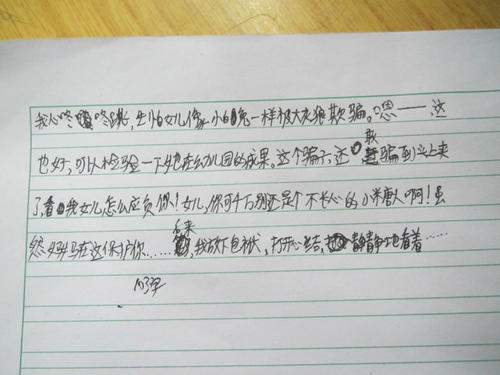 我心咚咚跳,生怕女儿像小白兔一样被大灰狼欺骗。嗯——这
也好,可以检验一下她在幼儿园的成果。这个骗子,还敢骗到头上来
了,看我女儿怎么应负你!女儿,你可千万别还是个不长心的小米唐人啊!虽
然妈妈在这保护你……后来,我放下包袱,打开心结,静静地看着……